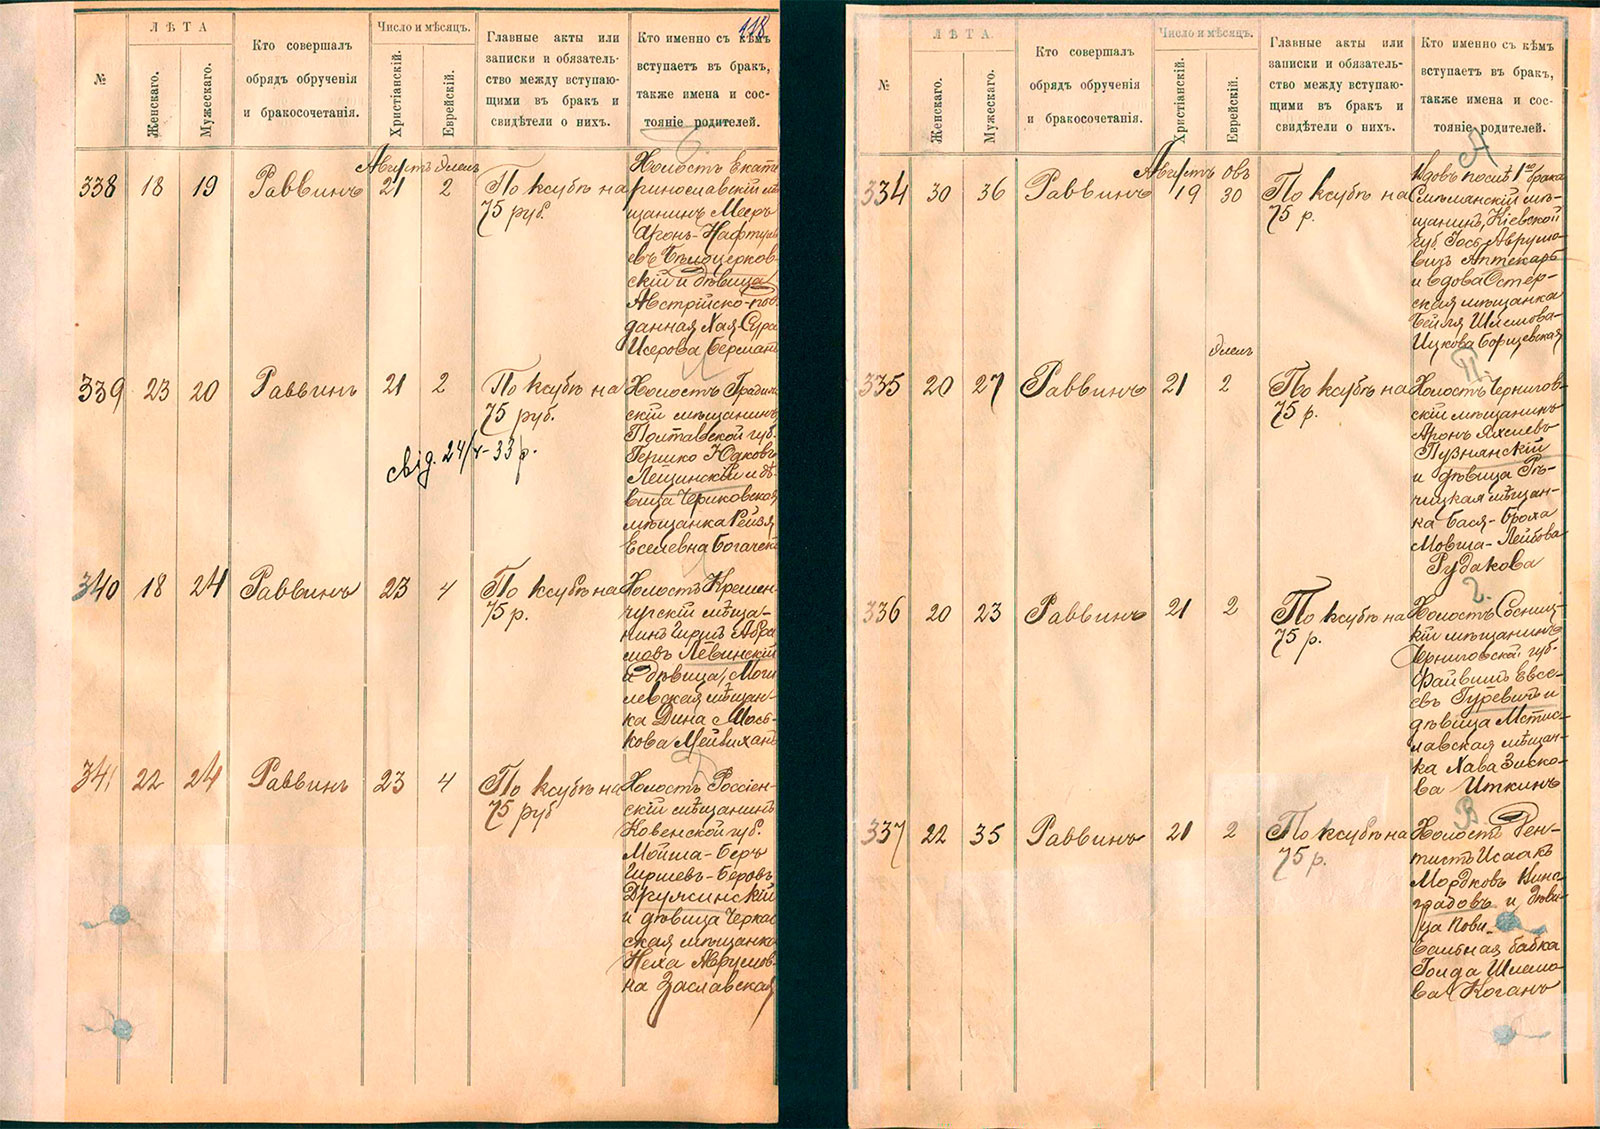 118
№
ЛѢТА
Женскаго.
Мужескаго.
Кто совершалъ
обрядъ обрученія
и бракосочетанія.
Число и мѣсяцъ.
Христіанскій.
Еврейскій.
Главные акты или
записки и обязатель-
ство между вступаю-
щими въ бракъ и
свидѣтели о нихъ.
Кто именно съ кѣмъ
вступаетъ въ бракъ,
также имена и сос-
тояніе родителей.
338
18
19
Раввинъ
Августъ Элелъ
21
2
По ксубѣ на
75 руб.
Холостъ Екате
ринославскій мѣ
щанинъ Мееръ
Аронъ-Нафтул
евъ Бѣлоцерков-
скій и дѣвица
Австрійско-под
данная Хая-Сура
Исерова Берманъ
339
23
20
Раввинъ
21
2
По ксубѣ на
75 руб.
свід. 24/V-33 р.
Холостъ Градиж
скій мѣщанинъ
Полтавской губ.
Гершко Юдковъ
Лещинскій и дѣ
вица Чериковская
мѣщанка Рейзя
Еселевна Богачек
340
18
24
Раввинъ
23
4
По ксубѣ на
75 р.
Холостъ Кремен-
чугскій мѣща-
нинъ Гиршъ Абра
мовъ Левинскій
и дѣвица Моги
левская мѣщан-
ка Дина Мось-
кова Мейлиханъ
341
22
24
Раввинъ
23
4
По ксубѣ на
75 руб
Холостъ Россіен-
скій мѣщанинъ
Ковенской губ.
Мойша-Беръ
Гиршевъ-Беровъ
Дружинскій
и дѣвица Черкас
ская мѣщанка
Неха Аврумов-
на Заславская
№
ЛѢТА.
Женскаго.
Мужескаго.
Кто совершалъ
обрядъ обрученія
и бракосочетанія.
Число и мѣсяцъ.
Христіанскій.
Еврейскій.
Главные акты или
записки и обязатель-
ство между вступаю-
щими въ бракъ и
свидѣтели о нихъ.
Кто именно съ кѣмъ
вступаетъ въ бракъ,
также имена и сос-
тояніе родителей.
А
334
30
36
Раввинъ
Августъ Овъ
19
30
По ксубѣ на
75 р.
Вдовъ послѣ 1го брака
Смѣлянскій мѣ-
щанинъ, Кіевской
губ. Іось Аврумо-
вичъ Аптекарь
и вдова Остер-
ская мѣщанка
Бейля Шлемова-
Ицкова Борщевская
П.
335
20
27
Раввинъ
Элелъ
21
2
По ксубѣ на
75 р.
Холостъ Чернигов-
скій мѣщанинъ
Аронъ Яхилевъ
Пузнянскій
и дѣвица Рѣ-
чицкая мѣщан-
ка Бася-Броха
Мовша-Лейбова
Рудакова
Г.
336
20
23
Раввинъ
21
2
По ксубѣ на
75 р.
Холостъ Сосниц-
кій мѣщанинъ
Черниговскій губ.
Файвишъ Евсе-
евъ Гуревичъ и
дѣвица Мстис-
лавская мѣщан-
ка Хава Зиско-
ва Иткинъ
В.
337
22
35
Раввинъ
21
2
По ксубѣ на
75 р.
Холостъ Ден-
тистъ Исаакъ
Мордковъ Вино
градовъ и дѣви-
ца Пови-
вальная бабка
Голда Шлемо-
ва Коганъ